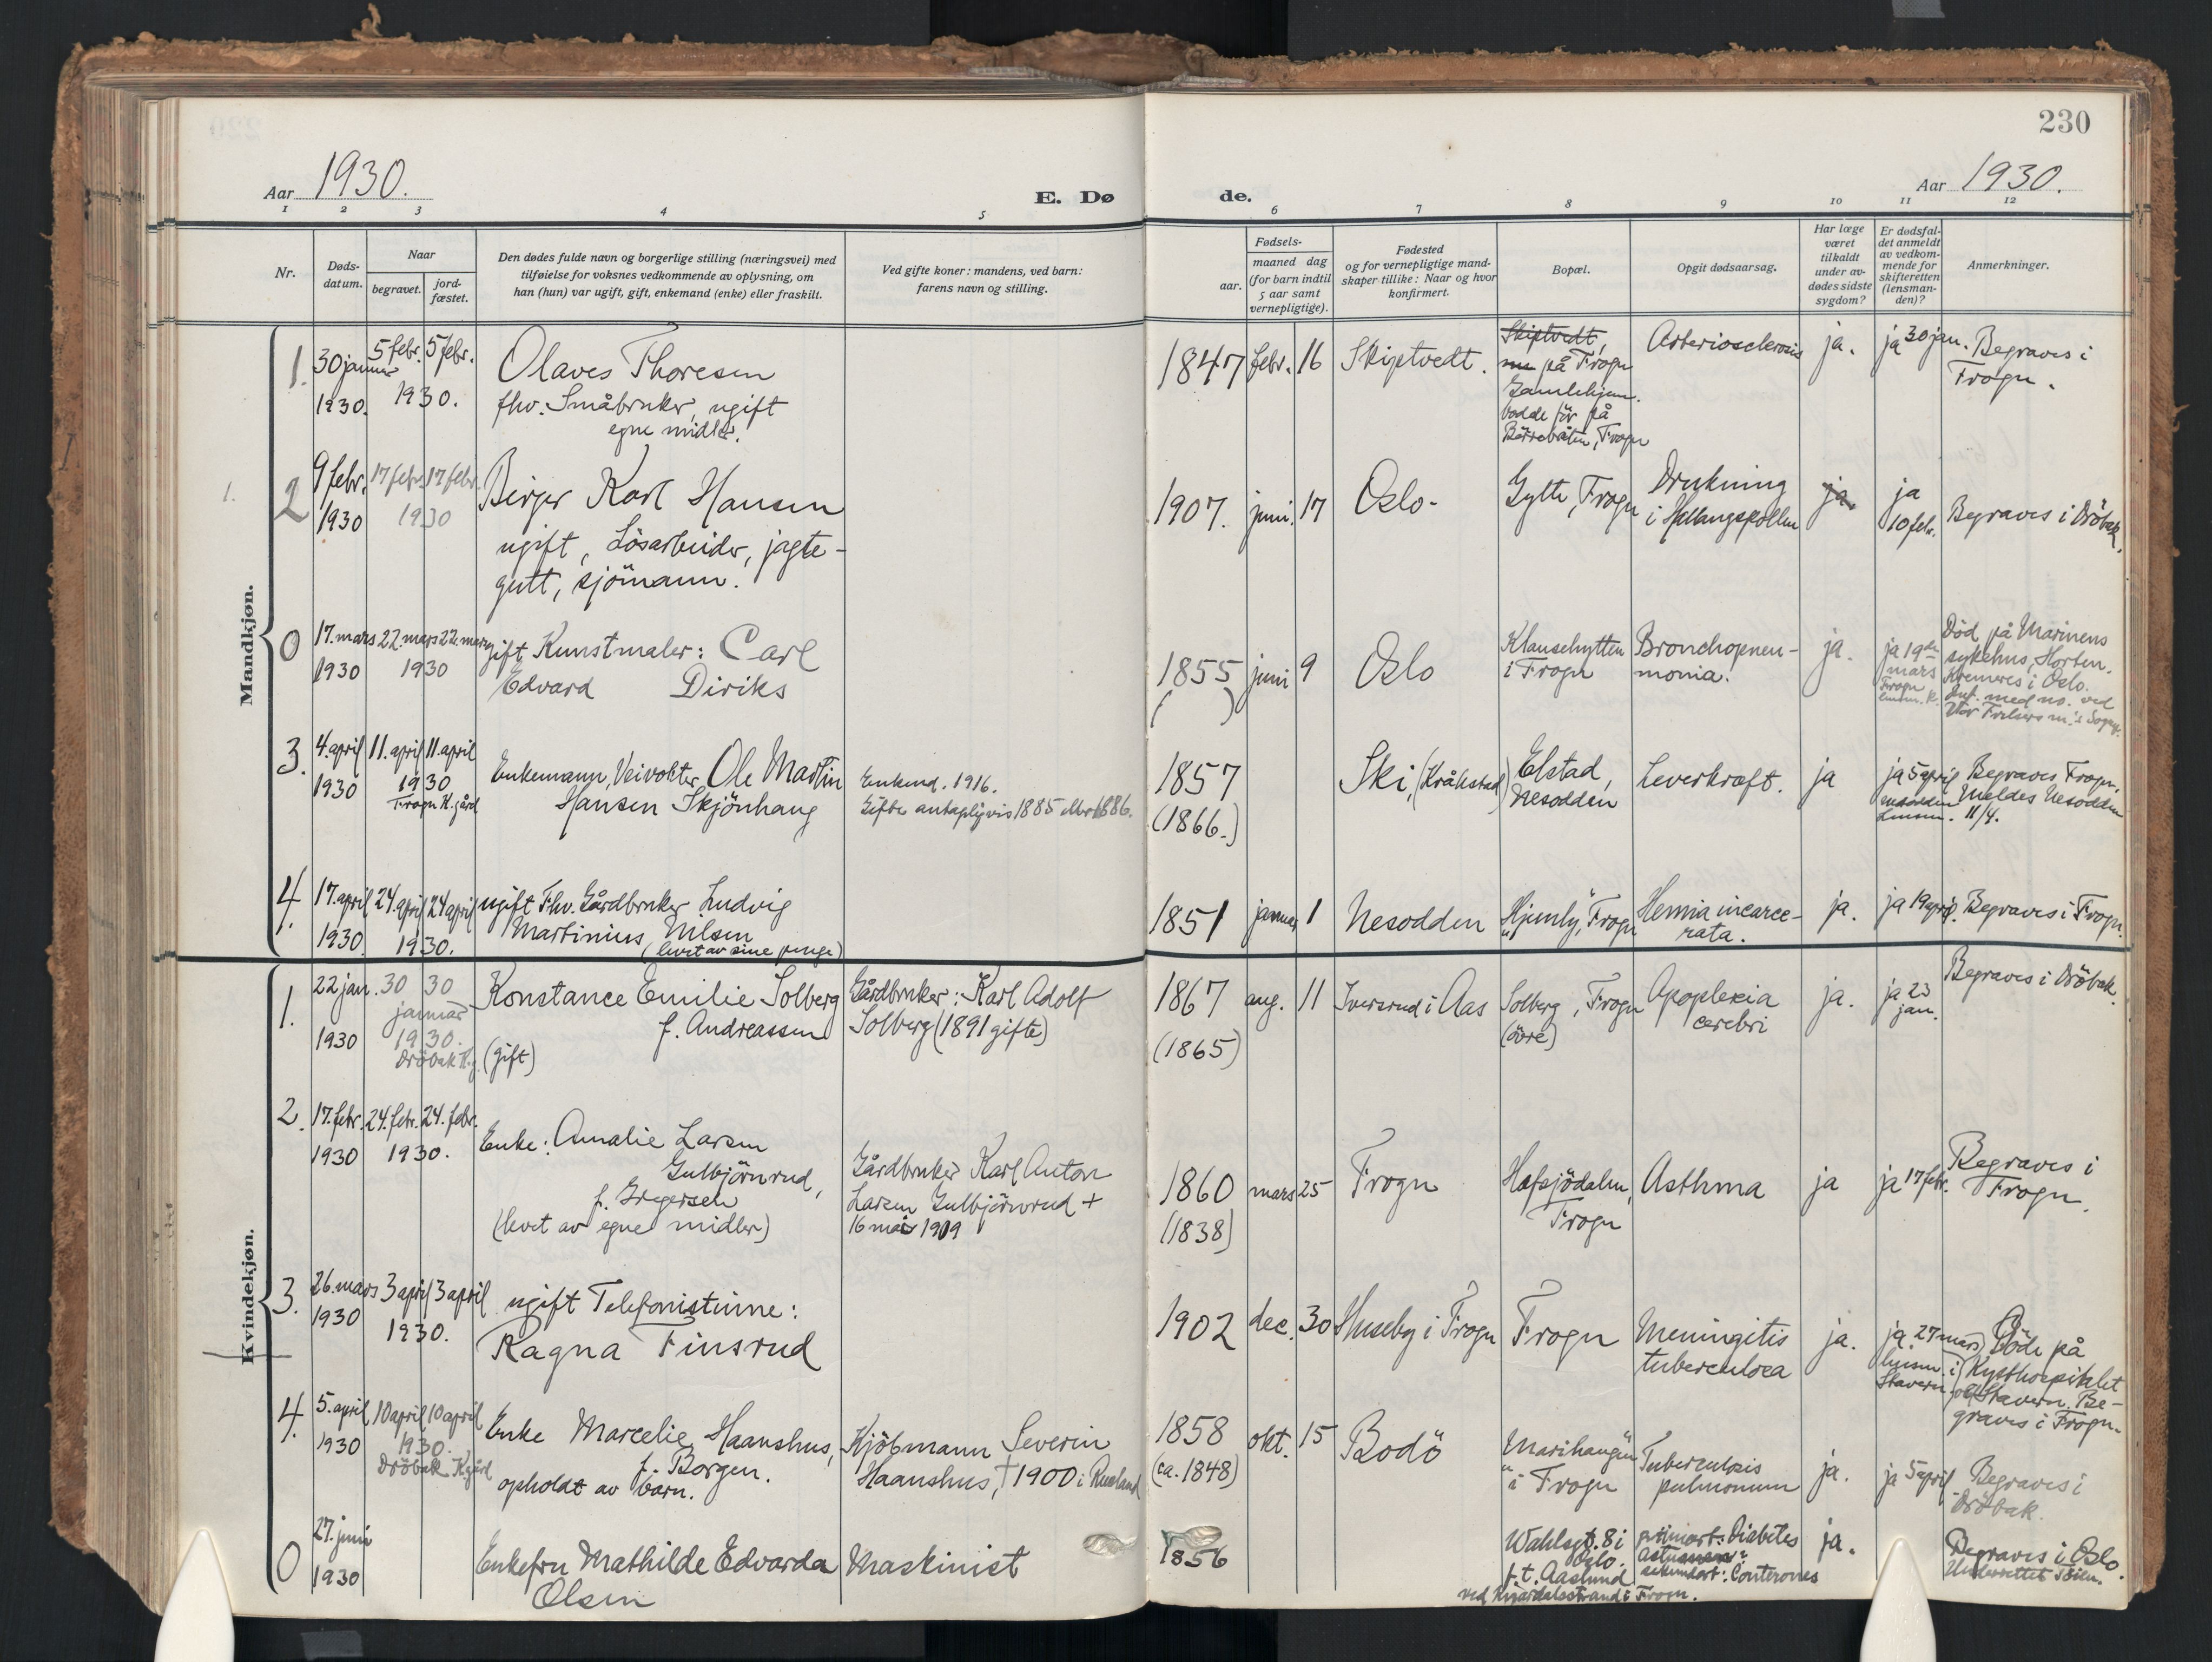 230
Aar 1930.
E. Dø
de.
Aar 1930.
1 2 3 4 5 6 7 8 9 10 11 12
Nr.
Døds-
datum.
Naar
begravet.
jord-
fæstet.
Den dødes fulde navn og borgerlige stilling (næringsvei) med
tilføielse for voksnes vedkommende av oplysning, om
han (hun) var ugift, gift, enkemand (enke) eller fraskilt.
Ved gifte koner: mandens, ved barn:
farens navn og stilling.
Fødsels-
aar.
maaned dag
(for barn indtil
5 aar samt
vernepligtige).
Fødested
og for vernepligtige mand-
skaper tillike: Naar og hvor
konfirmert.
Bopæl.
Opgit dødsaarsag.
Har læge
været
tilkaldt
under av-
dødes sidste
sygdom?
Er dødsfal-
det anmeldt
av vedkom-
mende for
skifteretten
(lensman-
den)?
Anmerkninger.
Mandkjøn.
1.
30 januar
1930.
5 febr. 5 febr.
1930.
Olaves Thoresen
fhv. Småbruker, ugift
egne midler.
1847 febr. 16
Skiptvedt.
Skiptvedt,
nu på Frogn
Gamlehjem.
bodde för på
Frogn
Arteriosclerosis
ja.
ja 30 jan.
Begraves i
Frogn.
1.
2
9 febr.
1930
17 febr. 17 febr.
1930
Birger Karl Hansen
ugift, Lösarbeider, jagte-
gutt, sjömann.
1907. juni. 17
Oslo.
Gylte, Frogn
Drukning
i Hallangspollen
ja.
ja
10 febr.
Begraves i Dröbak.
0
17. mars
1930
22. mars 22. mars
1930
gift Kunstmaler: Carl
Edvard Diriks
1855 juni 9
( )
Oslo
Klausehytten
i Frogn
Bronchopneu-
monia.
ja.
ja 19de
mars
Frogn
Död på Marinens
sykehus, Horten.
Kremeres i Oslo.
Inf. med no. ved
Vor Frelsers m.'s Sogn.
3.
4. april
1930
11. april 11. april
1930
Frogn K.gård
Enkemann, Veivokter Ole Martin
Hansen Skjönhaug
Enkemd. 1916.
Gifte antageligvis 1885 eller 1886.
1857
(1866.)
Ski, (Kråkstad)
Elstad,
Nesodden
Leverkræft.
ja
ja 5 april
Begraves Frogn,
Meldes Nesodden
11/4.
4.
17. april
1930
24. april 24 april
1930.
ugift Fhv. Gårdbruker Ludvig
Martinius Nilsen
(levet av sine penge)
1851 januar 1
Nesodden
"Hjemly", Frogn
Hernia incarce-
rata.
ja.
ja 19 april.
Begraves i Frogn.
Kvindekjøn.
1.
22 jan.
1930
30 30
januar
1930.
Dröbak K.g.
Konstance Emilie Solberg
f. Andreassen
(gift)
Gårdbruker: Karl Adolf
Solberg (1891 gifte)
1867 aug. 11
(1865)
Iversrud i Aas
Solberg, Frogn
(övre)
Apoplexia
cerebri
ja.
ja 23
jan.
Begraves i Dröbak.
2.
17. febr.
1930
24. febr. 24. febr.
1930.
Enke: Amalie Larsen
Gulbjörnrud,
f. Gregersen
(levet av egne midler)
Gårdbruker Karl Anton
Larsen Gulbjörnrud +
16 mai 1909
1860 mars 25
(1838)
Frogn
Hafsjödalen,
Frogn
Asthma
ja
ja 17 febr.
Begraves i
Frogn.
3.
26. mars
1930
3 april 3 april
1930.
ugift Telefonistinne:
Ragna Finsrud
1902 dec. 30
Huseby i Frogn
Frogn
Meningitis
tuberculosa
ja.
ja 27 mars
lensm. i
Stavern
Döde på
Kysthospitalet
Stavern. Be-
graves i Frogn.
4.
5. april
1930
10 april 10 april
1930.
Dröbak K.gård
Enke Marcelie Haanshus,
f. Borgen.
opholdt av barn.
Kjöbmann Severin
Haanshus, † 1900 i Rusland
1858 okt. 15
(ca. 1848)
Bodö
"Marihaugen"
i Frogn
Tuberculosis
pulmonum
ja.
ja 5 april
Begraves i
Dröbak.
0
27. juni
1930
Enkefru Mathilde Edvarda
Olsen
Maskinist
1856
Wahlsgt. 8 i
Oslo.
f.t. Aaslund
ved i Frogn.
primært: Diabetes
sekundært:
ja.
Begraves i Oslo.
Underrettet